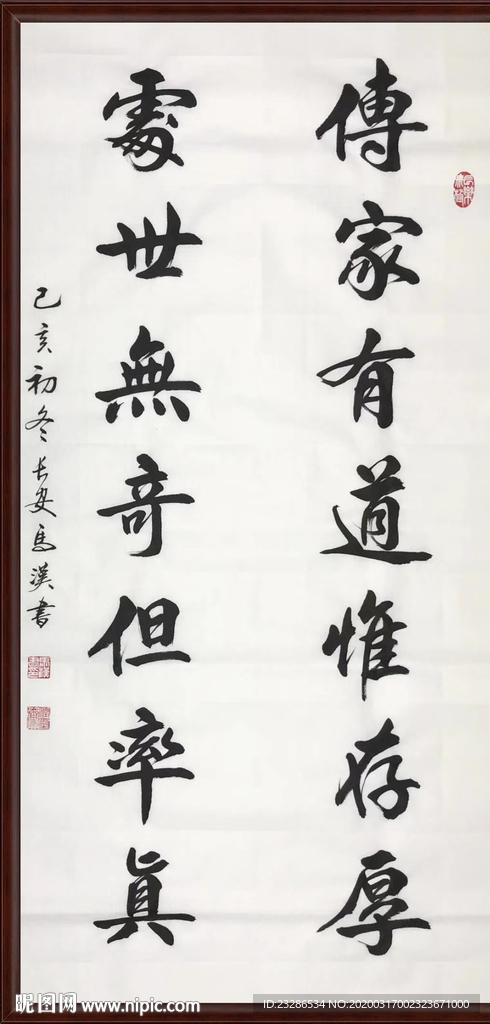 傳家有道惟存厚
處世無奇但率真
己亥初冬長安馬漢書
昵图网 www.nipic.com
ID:23286534 NO:20200317002323671000